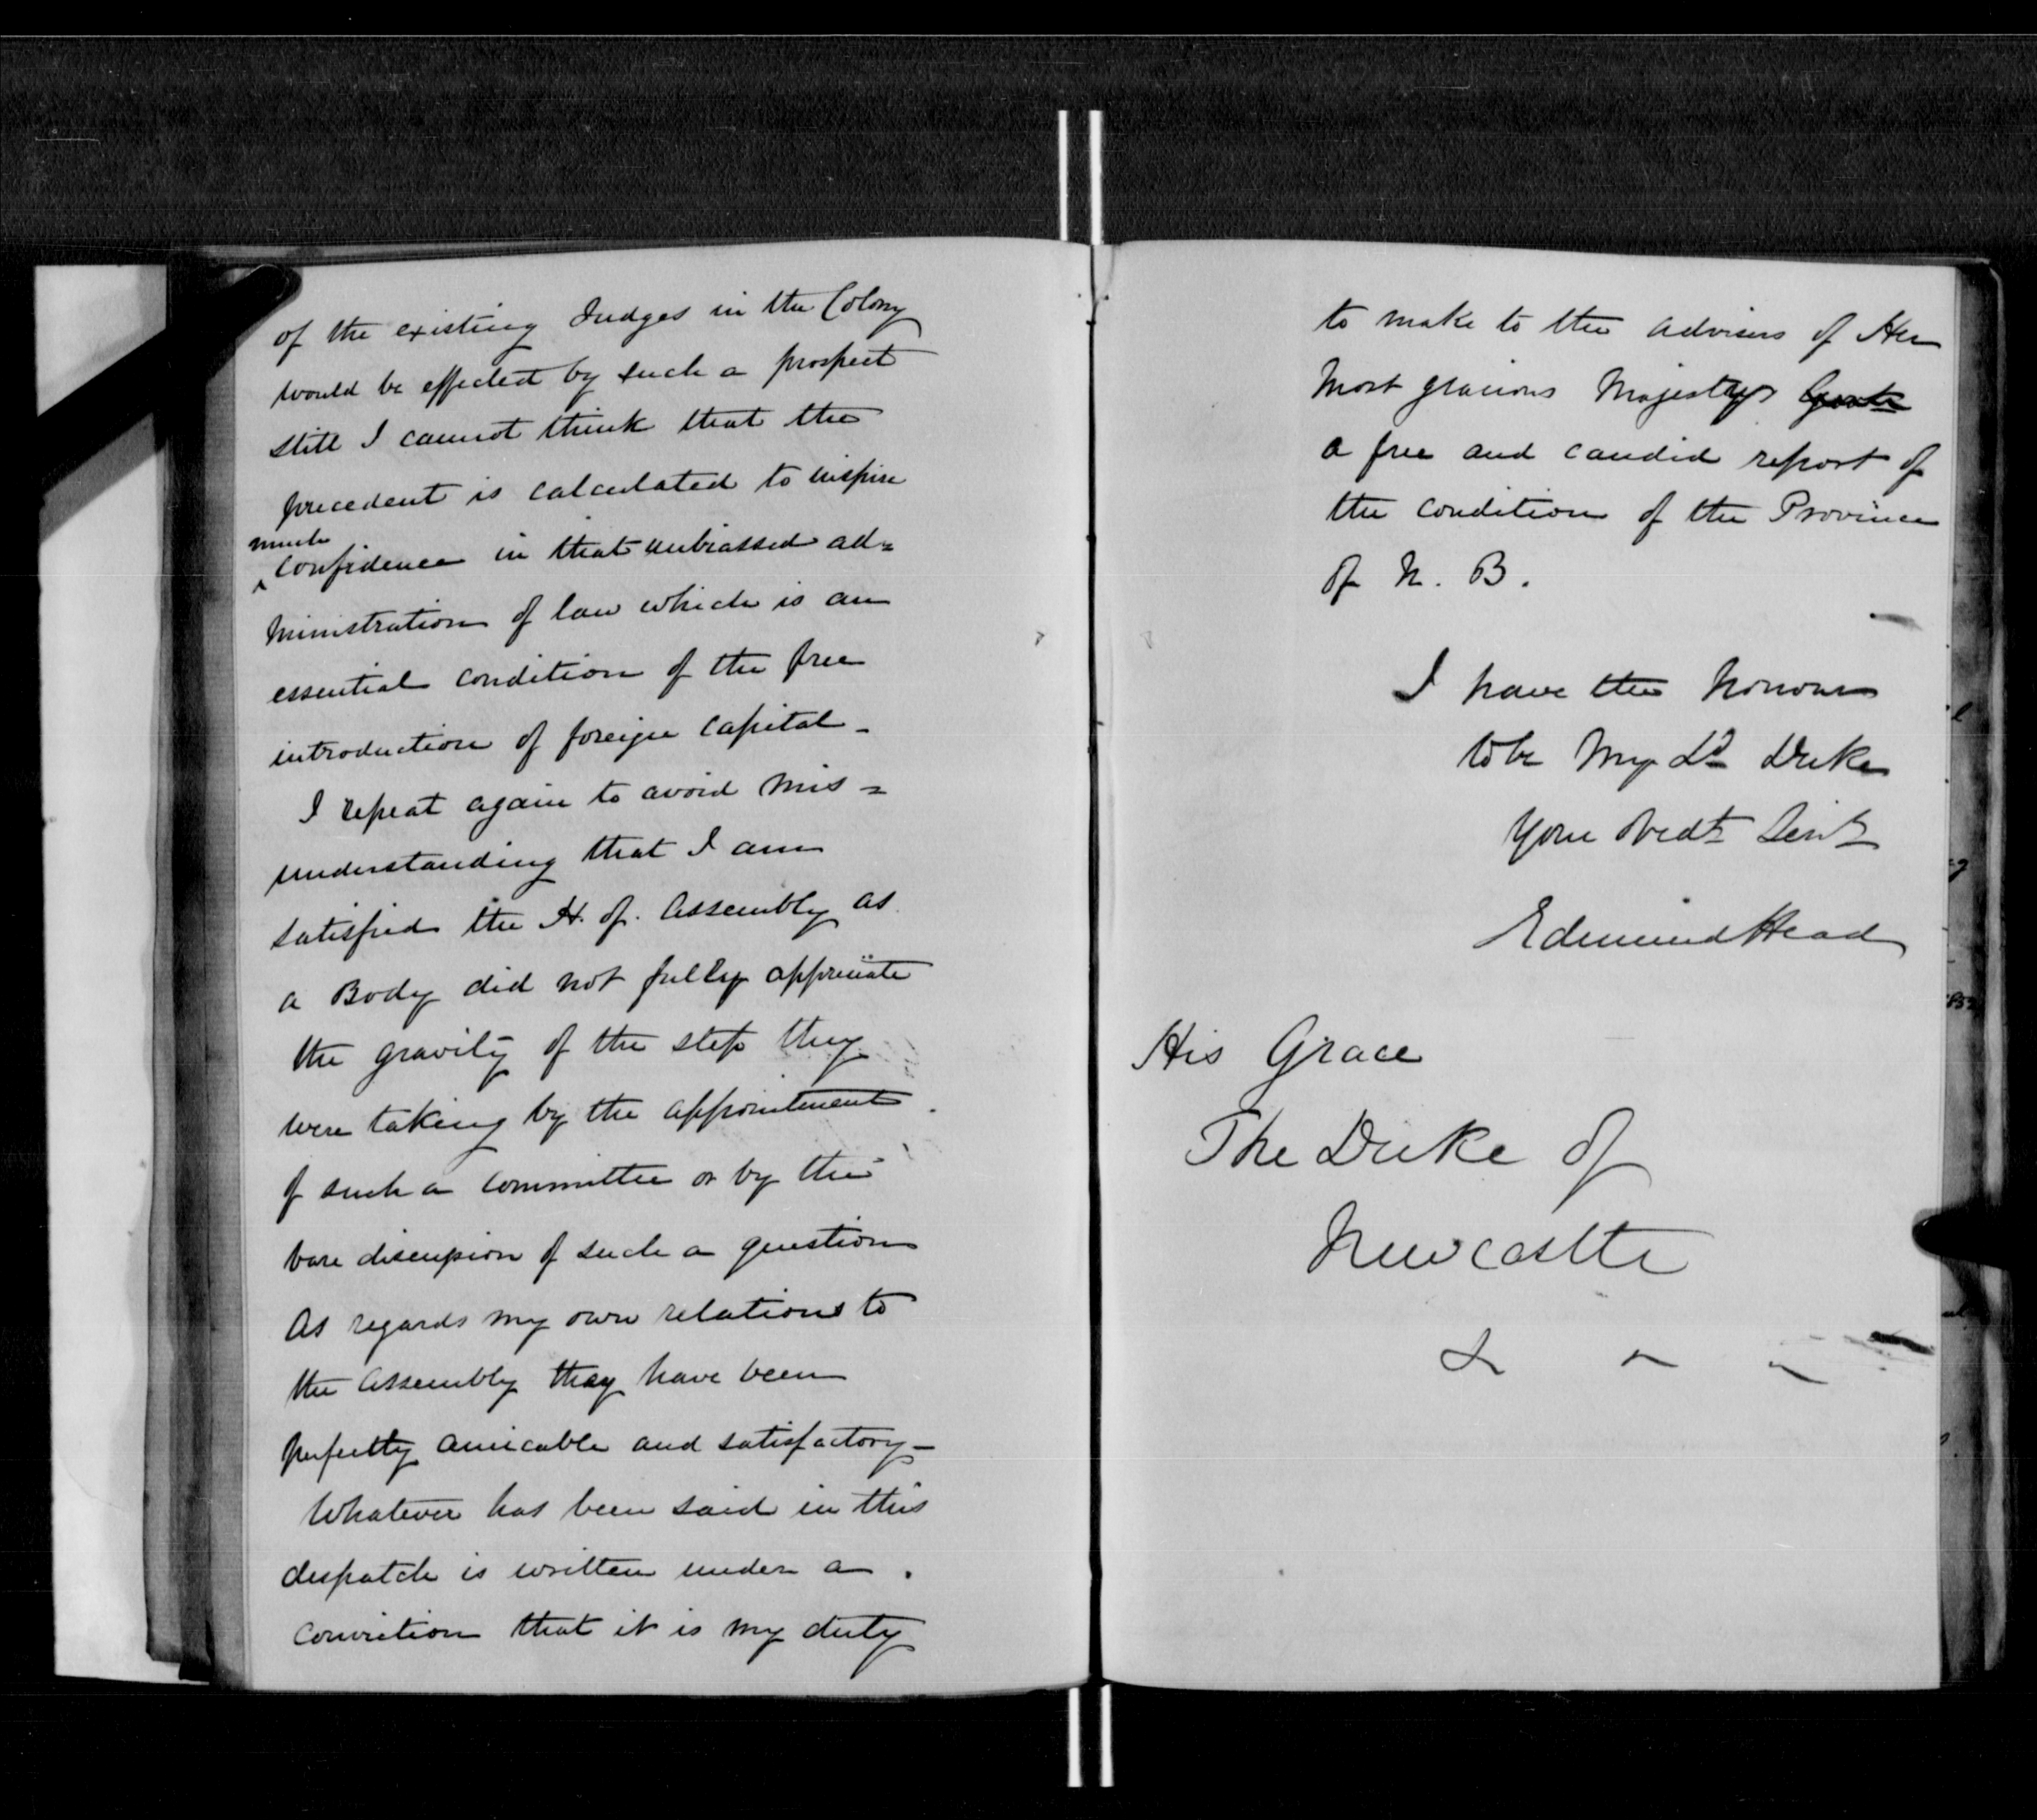 of the existing Judges in the Colony
would be effected by such a prospect
still I cannot think that the
precedent is calculated to inspire
much
confidence in that unbiassed ad=
ministration of law which is an
essential condition of the free
introduction of foreign capital -
I repeat again to avoid mis =
understanding that I am
satisfied the H. of. Assembly as
a Body did not fully appreciate
the gravity of the step they
were taking by the appointment
of such a committee or by the
bare discussion of such a question
As regards my own relations to
the Assembly they have been
perfectly amicable and satisfactory -
Whatever has been said in this
despatch is written under a
conviction that it is my duty
to make to the advisers of Her
Most gracious Majesty
a free and candid report of
the condition of the Province
of N. B.
I have the honour
to be My Ld Duke
Your Obedt Servt
Edmund Head
His Grace
The Duke of
Newcastle
& - -